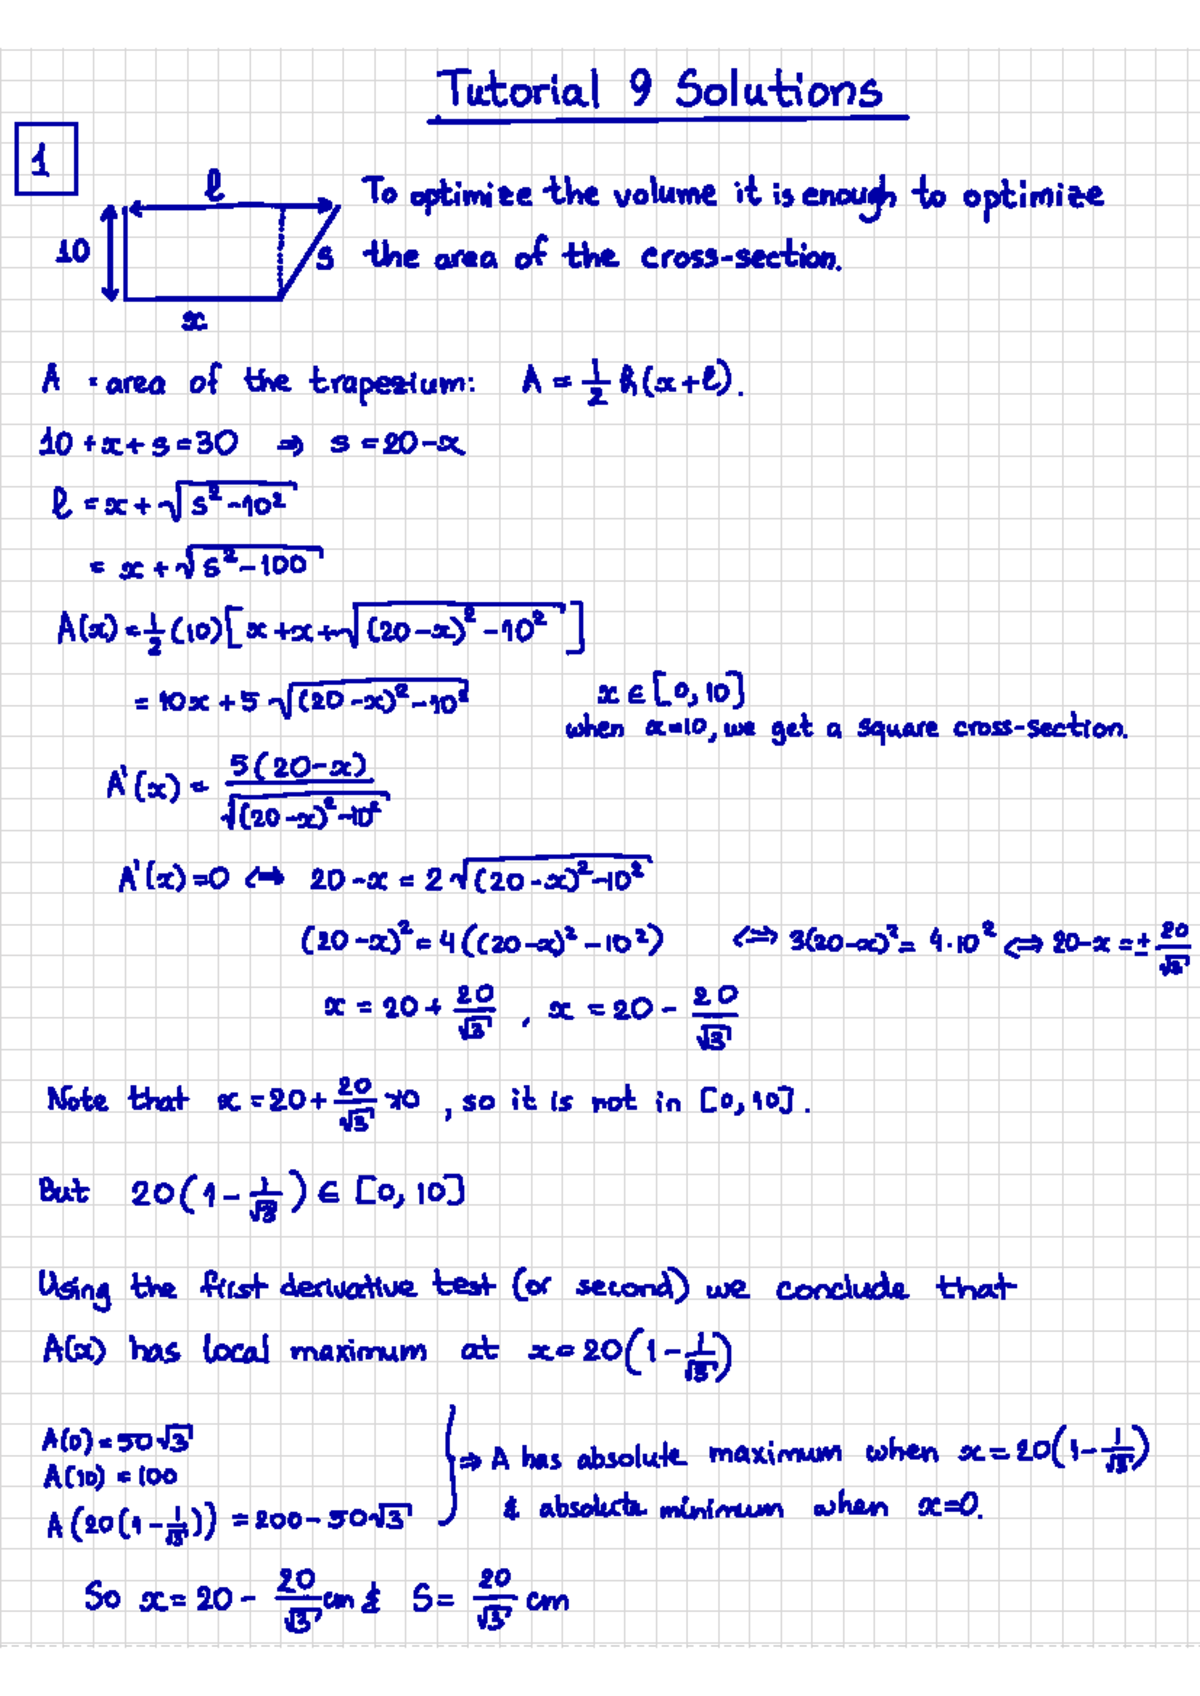 Tutorial 9 Solutions
1
l
10
s
x
To optimize the volume it is enough to optimize
the area of the cross-section.
A = area of the trapezium: A = 1/2 h(x+l).
10 + x + s = 30 ⇒ s = 20-x
l = x + √(s²-10²)
= x + √(s²-100)
A(x) = 1/2 (10)[x + x + √((20-x)²-10²)]
= 10x + 5√((20-x)²-10²)
x ∈ [0, 10]
when x=10, we get a square cross-section.
A'(x) = 5(20-x)/√((20-x)²-10²)
A'(x) = 0 ⇔ 20-x = 2√((20-x)²-10²)
(20-x)² = 4((20-x)²-10²) ⇔ 3(20-x)² = 4·10² ⇔ 20-x = ± 20/√3
x = 20 + 20/√3 , x = 20 - 20/√3
Note that x = 20 + 20/√3 >10 , so it is not in [0, 10].
But 20(1 - 1/√3) ∈ [0, 10]
Using the first derivative test (or second) we conclude that
A(x) has local maximum at x = 20(1 - 1/√3)
A(0) = 50√3
A(10) = 100
A(20(1 - 1/√3)) = 200 - 50√3
⇒ A has absolute maximum when x = 20(1 - 1/√3)
& absolute minimum when x=0.
So x = 20 - 20/√3 cm & S = 20/√3 cm